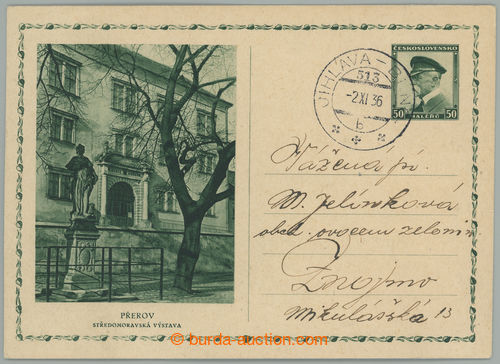 ČESKOSLOVENSKO
50 HALÉŘŮ 50
JIHLAVA
513
-2.XI.36
b
Vážená pí.
M. Jelínková
obch. ovocem zelenin
Znojmo
Mikulášská 13
PŘEROV
STŘEDOMORAVSKÁ VÝSTAVA
© burda-auction.com